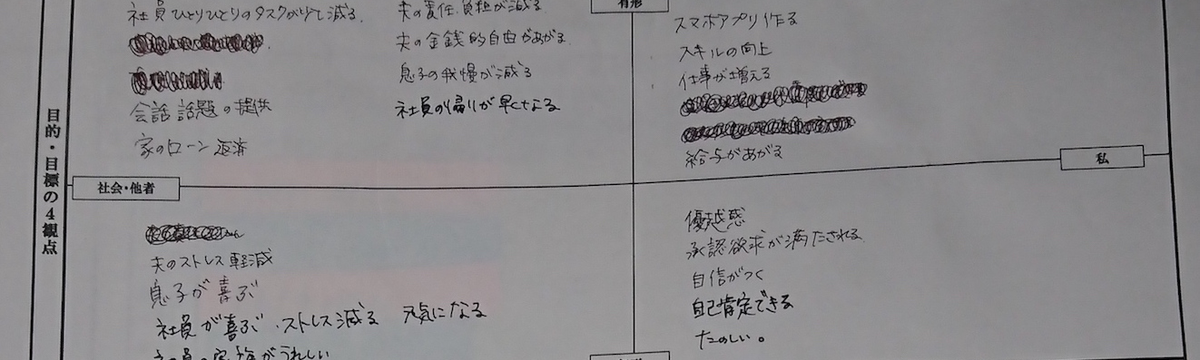 有形
社員ひとりひとりのタスクが減る
夫の責任、負担が減る
夫の金銭的自由があがる
息子の我慢が減る
社員の帰りが早くなる
会話 話題の提供
家のローン返済
スマホアプリ作る
スキルの向上
仕事が増える
給与があがる
目的・目標の4観点
社会・他者
私
夫のストレス軽減
息子が喜ぶ
社員が喜ぶ・ストレス減る 元気になる
がうれしい
優越感
承認欲求が満たされる
自信がつく
自己肯定できる
たのしい。